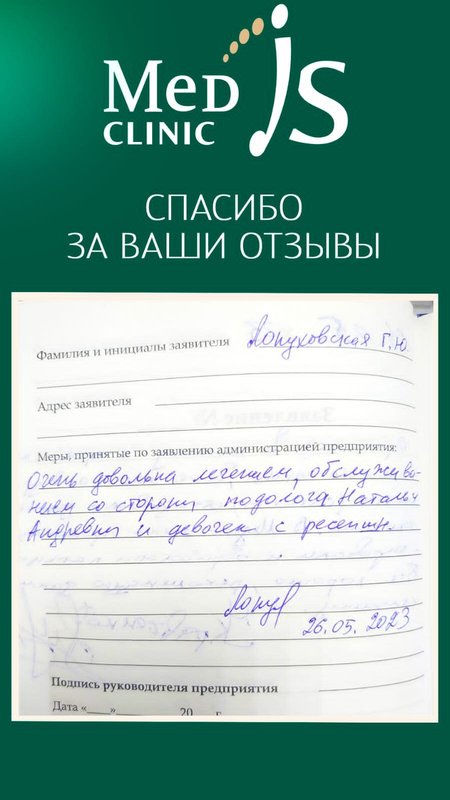 MED JS
CLINIC
СПАСИБО
ЗА ВАШИ ОТЗЫВЫ
Фамилия и инициалы заявителя Лопуховская Г.Ю.
Адрес заявителя
Меры, принятые по заявлению администрацией предприятия:
Очень довольна лечением, обслужива-
нием со стороны подолога Натальи
Андреевны и девочек с ресепшн.
26.05.2023
Подпись руководителя предприятия
Дата «____»____________20____г